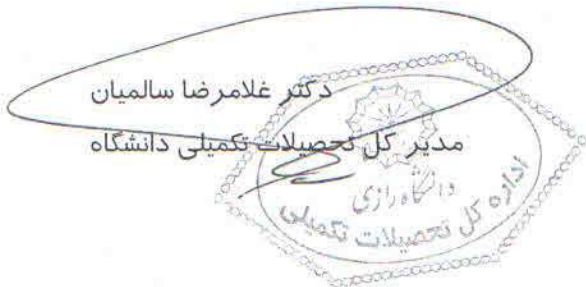 دکتر غلامرضا سالمیان
مدیر کل تحصیلات تکمیلی دانشگاه
دانشگاه رازی
اداره کل تحصیلات تکمیلی